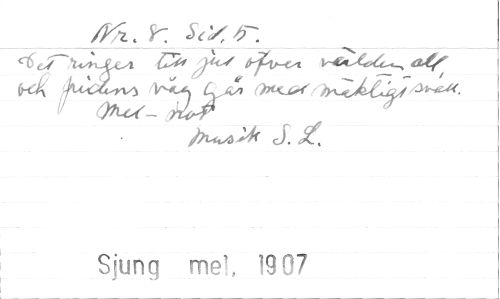 Nr. 8. Sid. 5.
Det ringer till jul öfver världen all,
och fridens våg går med mäktigt svall.
Mel-not
Musik S. L.
Sjung mel, 1907